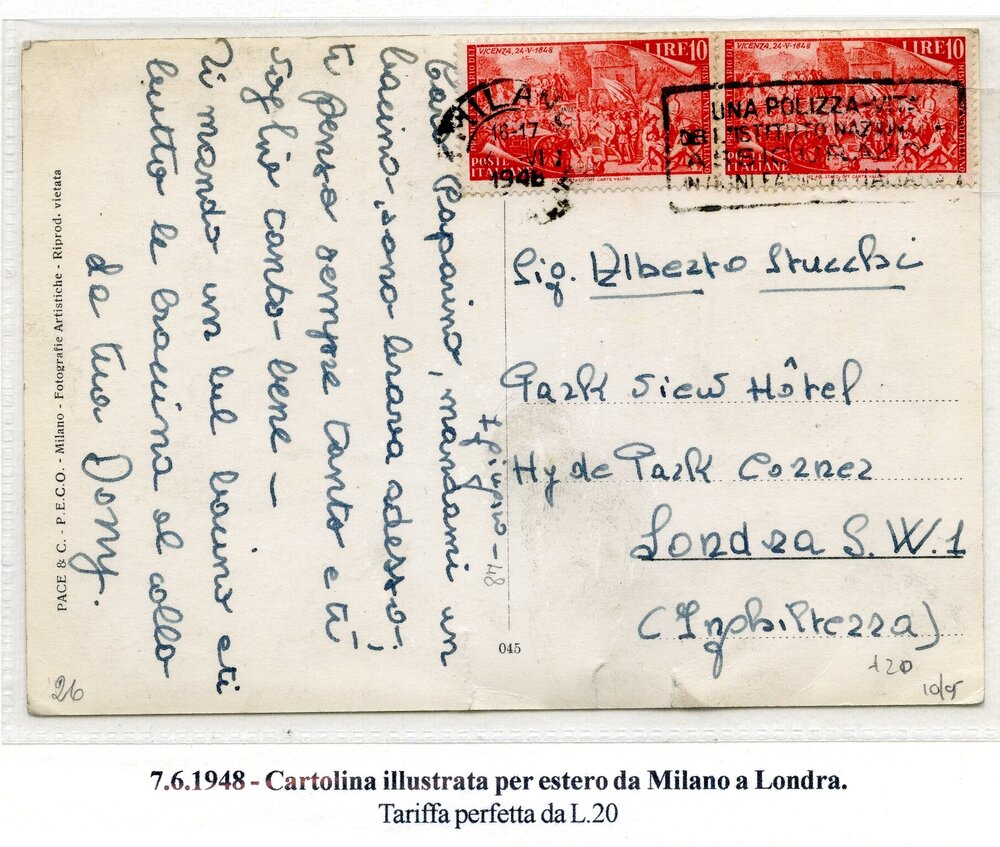 VICENZA, 24-V-1848
LIRE 10
POSTE ITALIANE
VICENZA, 24-V-1848
LIRE 10
ITALIANE
MILANO
16-17
VI
1948
UNA POLIZZA-VITA
DELL'ISTITUTO NAZIONALE
IN OGNI FAMIGLIA ITALIANA
Caro Paparino, mandami un
bacino, sono brava adesso,
ti penso sempre tanto e ti
voglio tanto bene -
Ti mando un bel bacino e ti
butto le braccina al collo
la tua Dony.
7 giugno - 48
Sig. Alberto Stucchi
Park View Hôtel
Hyde Park Corner
Londra S.W.1
(Inghilterra)
PACE & C. - P.E.C.O. - Milano - Fotografie Artistiche - Riprod. vietata
045
26
120
10/5
7.6.1948 - Cartolina illustrata per estero da Milano a Londra.
Tariffa perfetta da L.20